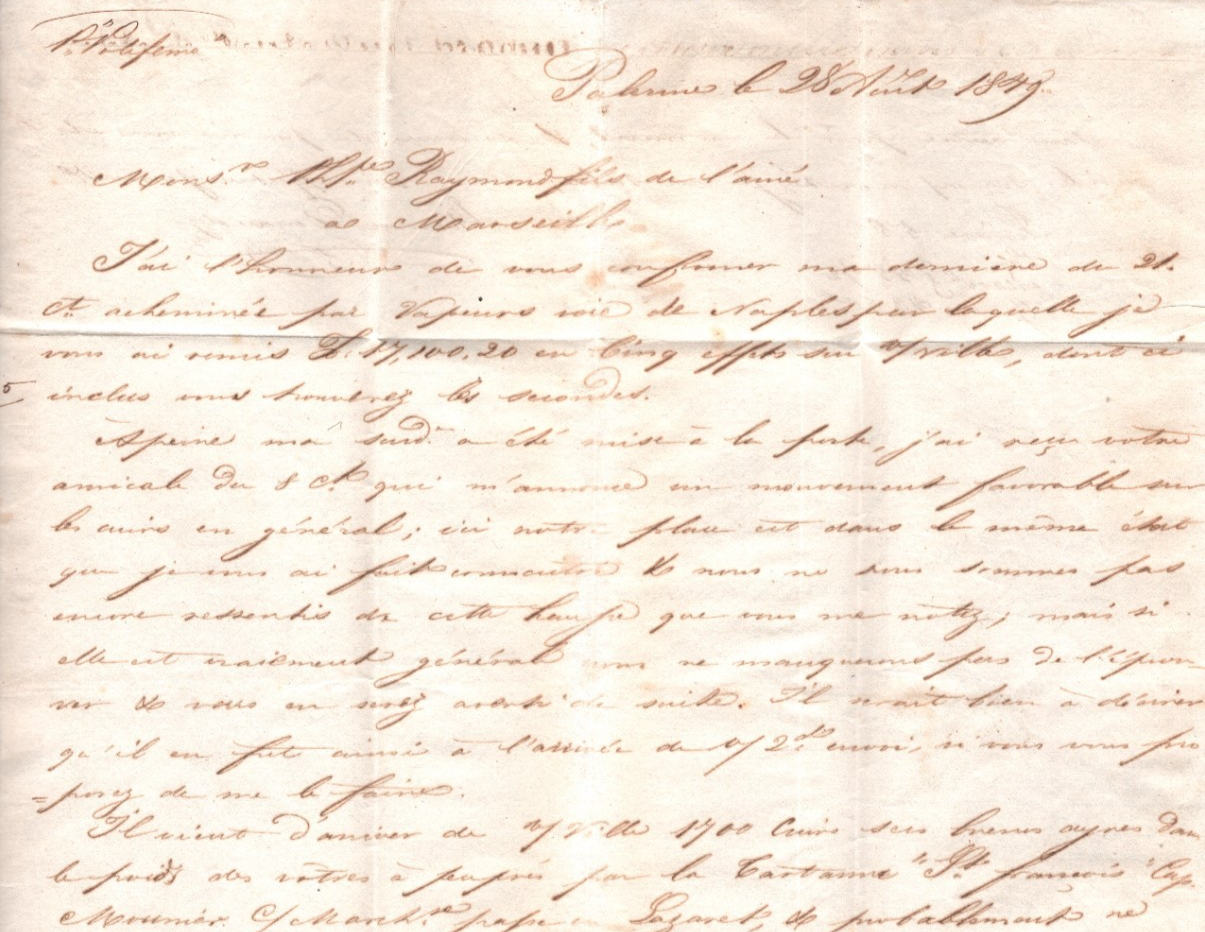 Palerme le 28 Août 1849.
Monsr. Hte Raymond fils de l'ainé
a Marseille
J'ai l'honneur de vous confirmer ma dernière du 21.
ct. acheminée par Vapeurs voie de Naples par laquelle je
vous ai remis F. 17,100.20 en Cinq effets sur V/ville, dont ci
5
inclus vous trouverez les secondes.
Apeine ma susd. a été mise à la poste, j'ai reçu votre
amicale du 8 ct. qui m'annonce un mouvement favorable sur
les cuirs en général; ici notre place est dans le même état
que je vous ai fait connaitre & nous ne nous sommes pas
encore ressentis de cette hausse que vous me notez; mais si
elle est vraiement général nous ne manquerons pas de l'éprou-
ver & vous en serez averti de suite. Il serait bien à désirer
qu'il en fut ainsi à l'arrivée de V/ 2d envoi, si vous vous pro
=posez de me le faire.
Il vient d'arriver de V/Ville 1700 Cuirs secs buenos ayres dans
le poids des vôtres à peuprés par la Tartanne "St. françois" Cap.
Mounier. C/ March.se passe en Lazaret, & probablement ne